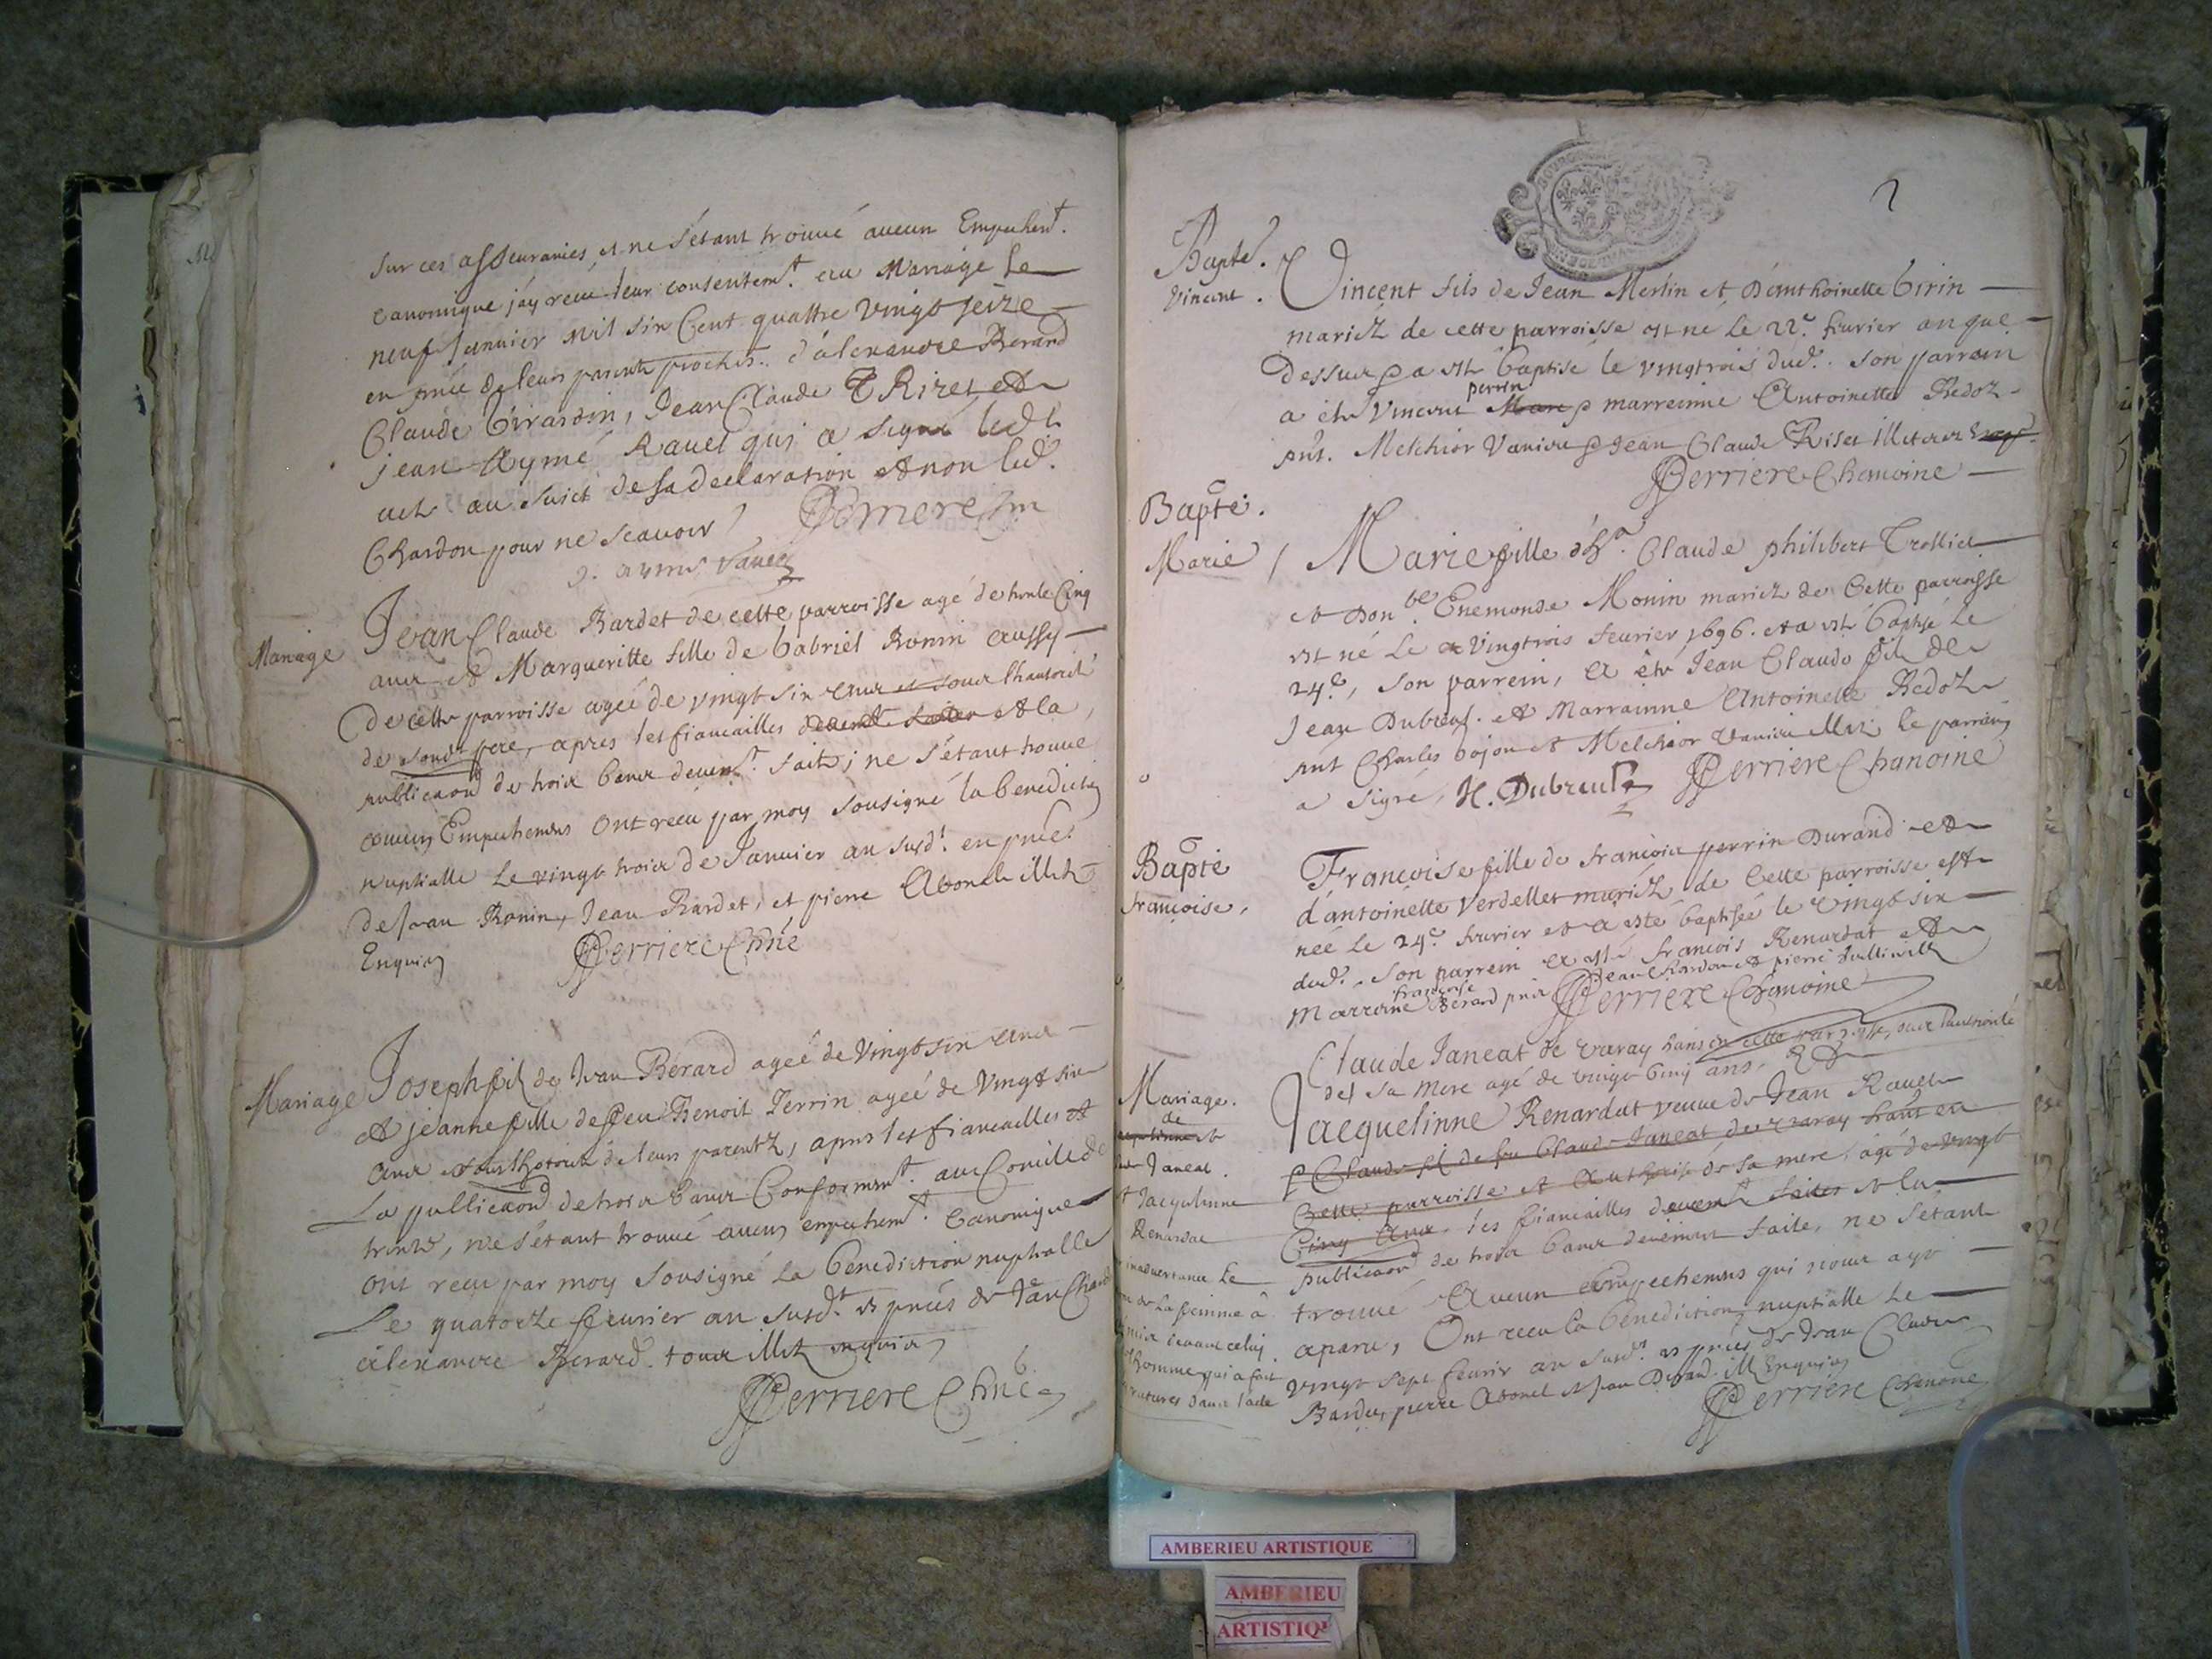 sur ces asseurances, et ne s'étant trouvé aucun Empechemt.
canonique j'ay receu leur consentemt. au Mariage le
neuf Janvier mil six Cent quattre vingt seize
en pnce de leurs parents proches. d'alexandre Berard
Claude Girardin, Jean Claude Riret et
jean Aymé Ravet qui a signé led.
au sujet de sa declaration et non led.
Chardon pour ne scavoir Perriere
J. aymé Ravet
Mariage
Jean Claude Bardet de cette parroisse agé de trente Cinq
ancz et Margueritte fille de Gabriel Ronin aussy
de cette parroisse agée de vingt six ancz et souz l'hautorité
de sond. pere, apres les fiancailles et la
publicaon de troix bancz devemt. fait; ne s'étant trouvé
aucun Empechemens ont receu par moy sousigné la benediction
nuptialle le vingt troix de Janvier an susdt. en pnce
de Jean Ronin, Jean Bardet, et pierre Abonel illitz
Enquis Perriere Chne
Mariage
Joseph fils de Jean Berard ageé de Vingt six ancz
et jeanne fille de feu Benoit Perrin ageé de Vingt six
ancz et de leurs parentz, apres les fiancailles et
La publicaon de troix bancz Conformemt. au Concile de
trente, ne s'étant trouvé aucun empechemt. Canonique
ont receu par moy sousigné la benediction nuptialle
Le quatorze fevrier an susdt. et pnces de Jean
alexandre Berard. touz illitz enquis
Perriere Chne
2
Bapte.
Vincent.
Vincent fils de Jean Merlin et D'amthoinette Girin
mariez de cette parroisse est né le 22e. fevrier an que
dessus et a esté baptisé le vingtrois dud. son parrain
perrin
a été Vincent marreinne Antoinette Redoz
pnt. Melchior Vaniere et Jean Claude Riset illiterez
Perriere Chanoine
Bapte.
Marie
Marie fille d'hr. Claude philibert Trolliet
et d'hon.ble Enemonde Monin mariez de Cette parroisse
est né le vingtrois fevrier 1696. et a esté baptisé le
24e, son parrein, a été Jean Claude fils de
Jean Dubreul. et Marrainne Antoinette Redoz
pnt Charles bojon et Melchior Vaniere illit. le parrain
a signé, H. Dubreul Perriere Chanoine
Bapte
francoise,
Francoise fille de francoix perrin Durand et
d'antoinette Verdellet mariez de Cette parroisse est
née le 24e. fevrier et a esté baptisée le vingt six
dud. son parrein a esté francois Renardat et
francoise
Marraine Berard pnts Jean Chardon et pierre
Perriere Chanoine
Mariage.
de
Janeat.
et Jacquelinne
Renardat
inadvertance le
de la femme à
devant celuy
homme qui a fait
ratures dans l'acte
Claude Janeat de varay hans en cette parroisse, souz l'authorité
de sa mere agé de vingt Cinq ans. Et
Jacquelinne Renardat veuve de Jean Ravet
Claude fils de feu Claude Janeat de varay hans en
Cette parroisse et de sa mere, agé de vingt
Cinq ancz, les fiancailles devemt. faites et la
publicaon de troix bancz devement faite, ne s'étant
trouvé aucun empechemens qui nous aye
aparu, Ont receu la benediction nuptialle le
vingt sept fevrier an susdt. et pnces de Jean Claude
Bardet, pierre Abonel et Jean Durand. ill. Enquis
Perriere Chanoine
AMBERIEU ARTISTIQUE
AMBERIEU
ARTISTIQ